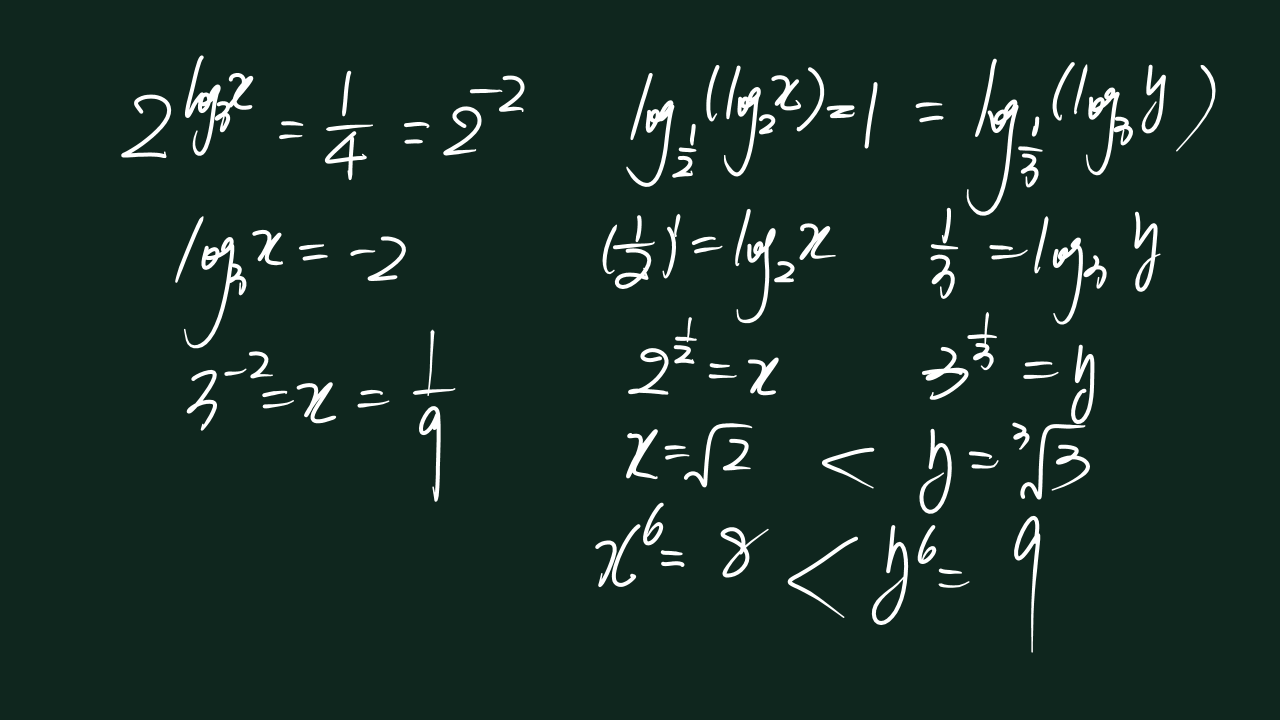 2^{log₃x} = 1/4 = 2^{-2}
log₃x = -2
3^{-2} = x = 1/9
log_{1/2}(log₂x) = 1 = log_{1/3}(log₃y)
(1/2)^1 = log₂x    1/3 = log₃y
2^{1/2} = x    3^{1/3} = y
x = √2 < y = ∛3
x^6 = 8 < y^6 = 9